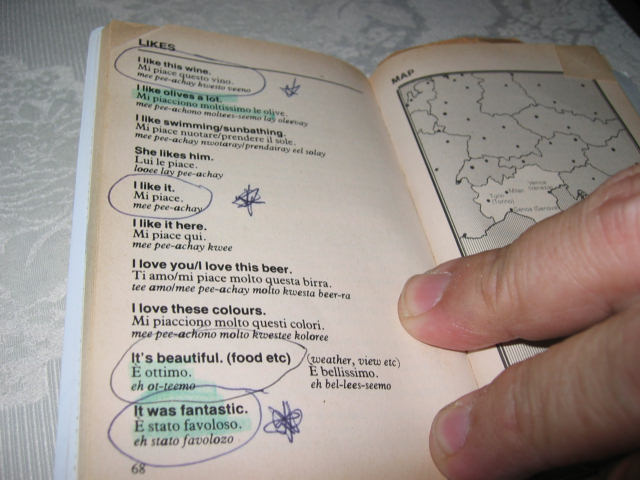 LIKES
I like this wine.
Mi piace questo vino.
mee pee-achay kwesto veeno
I like olives a lot.
Mi piacciono moltissimo le olive.
mee pee-achono moltees-seemo lay oleevay
I like swimming/sunbathing.
Mi piace nuotare/prendere il sole.
mee pee-achay nwotaray/prendairay eel solay
She likes him.
Lui le piace.
looee lay pee-achay
I like it.
Mi piace.
mee pee-achay
I like it here.
Mi piace qui.
mee pee-achay kwee
I love you/I love this beer.
Ti amo/mi piace molto questa birra.
tee amo/mee pee-achay molto kwesta beer-ra
I love these colours.
Mi piacciono molto questi colori.
mee pee-achono molto kwestee koloree
It's beautiful. (food etc)
È ottimo.
eh ot-teemo
(weather, view etc)
È bellissimo.
eh bel-lees-seemo
It was fantastic.
È stato favoloso.
eh stato favolozo
68
MAP
(Torino)